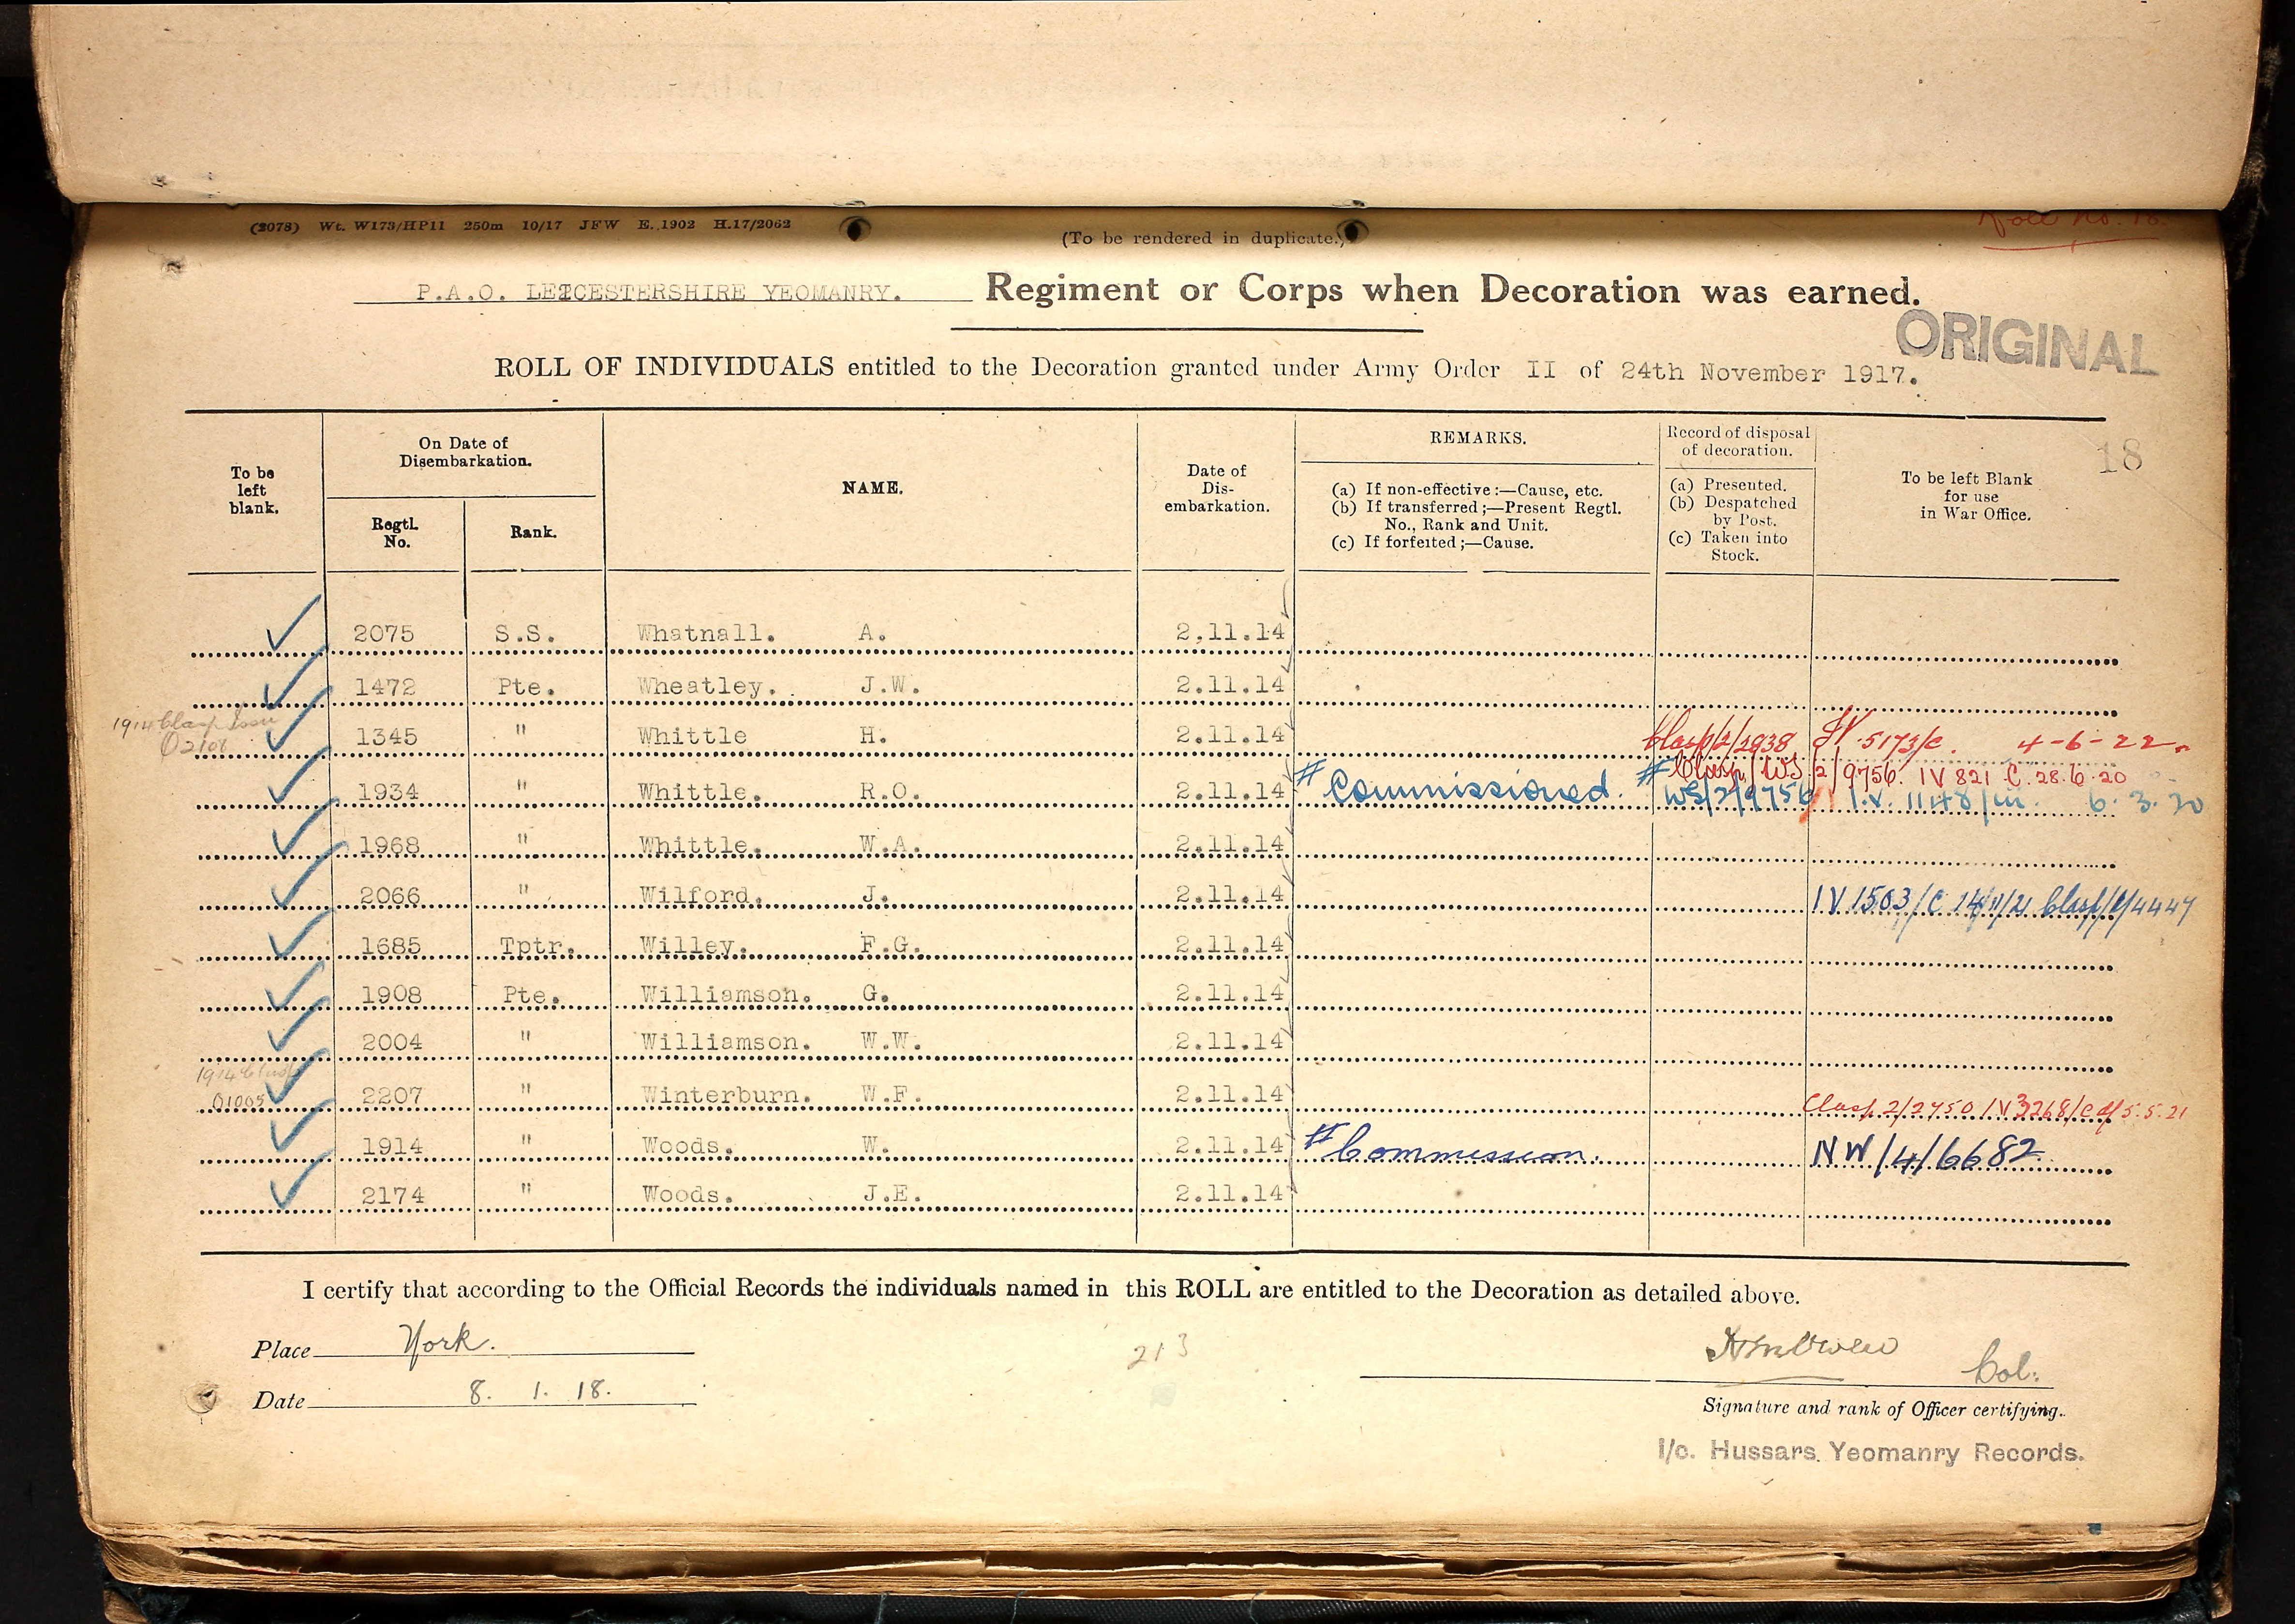 (2078) Wt. W173/HP11 250m 10/17 JFW E. 1902 H.17/2062
(To be rendered in duplicate.)
Roll No. 18.
P.A.O. LEICESTERSHIRE YEOMANRY. Regiment or Corps when Decoration was earned.
ORIGINAL
ROLL OF INDIVIDUALS entitled to the Decoration granted under Army Order II of 24th November 1917.
18
To be left blank.
On Date of Disembarkation.
Regtl. No.
Rank.
NAME.
Date of Dis-embarkation.
REMARKS.
(a) If non-effective:—Cause, etc.
(b) If transferred;—Present Regtl. No., Rank and Unit.
(c) If forfeited;—Cause.
Record of disposal of decoration.
(a) Presented.
(b) Despatched by Post.
(c) Taken into Stock.
To be left Blank for use in War Office.
2075 S.S. Whatnall. A. 2.11.14
1472 Pte. Wheatley. J.W. 2.11.14
1914 Clasp Issu
O2101
1345 " Whittle H. 2.11.14 Clasp/2/2938 IV 5173/C. 4-6-22
# Clasp/WS/2/9756. IV 821 C. 28.6.20
1934 " Whittle. R.O. 2.11.14 # Commissioned. WS/2/9756 I.V. 1148/ 6.3.20
1968 " Whittle. W.A. 2.11.14
2066 " Wilford. J. 2.11.14 IV 1503/C 14/11/21 Clasp/1/4447
1685 Tptr. Willey. F.G. 2.11.14
1908 Pte. Williamson. G. 2.11.14
2004 " Williamson. W.W. 2.11.14
1914 Clasp
O1005
2207 " Winterburn. W.F. 2.11.14 Clasp 2/2750 IV 3268/C d/ 5.5.21
1914 " Woods. W. 2.11.14 # Commission. NW/4/6682
2174 " Woods. J.E. 2.11.14
I certify that according to the Official Records the individuals named in this ROLL are entitled to the Decoration as detailed above.
Place York.
213
Col.
Date 8. 1. 18.
Signature and rank of Officer certifying.
i/c. Hussars Yeomanry Records.